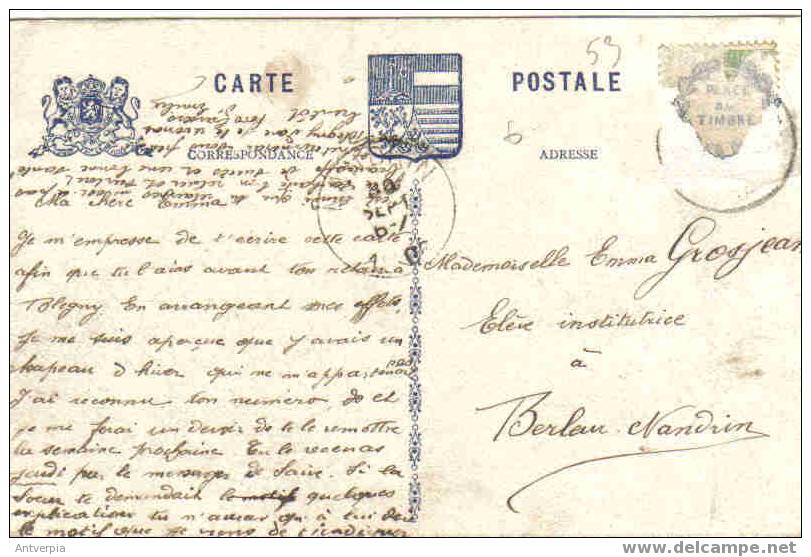 59
CARTE POSTALE
PLACE
DU
TIMBRE
6
CORRESPONDANCE
ADRESSE
Ma chère Emma
Je m'empresse de t'écrire cette carte
afin que tu l'aies avant ton retour à
Blegny. En arrangeant mes effets,
je me suis aperçue que j'avais un
chapeau d'hiver qui ne m'appartenait pas
J'ai reconnu ton numéro, 20 et
je me ferai un devoir de te le remettre
la semaine prochaine. Tu le recevras
jeudi par le messager de Saive. Si la
Soeur te demandait le motif quelques
explications tu n'auras qu'à lui dire
le motif que je viens de t'indiquer
Mademoiselle Emma Grosjean
Elève institutrice
à
Berleur-Nandrin
30
SEPT
Antverpia
delcampe.net